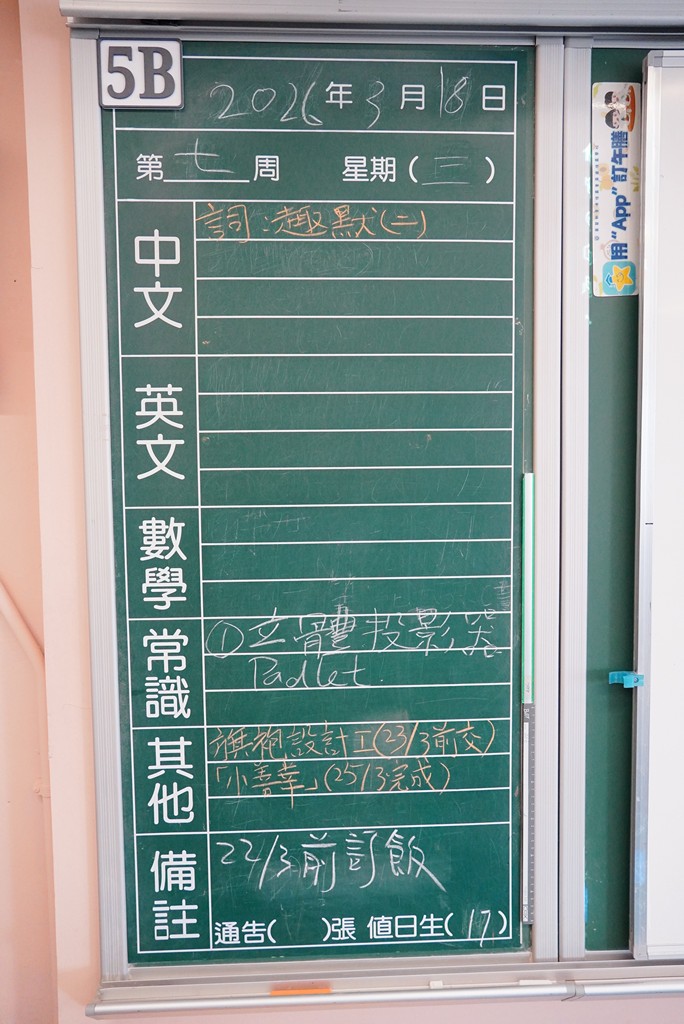 5B
2026年3月18日
第七周 星期(三)
中文
詞:趣默(二)
英文
數學
常識
①立體投影器
Padlet.
其他
旗袍設計工(23/3前交)
「小善幸」(25/3完成)
備註
22/3前訂飯
通告( )張 值日生(17)
用“App”訂午膳